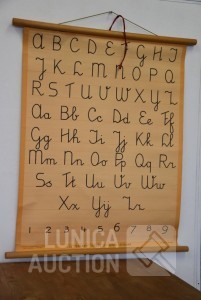 A B C D E F G H I
J K L M N O P Q
R S T U V W X Y Z
Aa Bb Cc Dd Ee Ff
Gg Hh Ii Jj Kk Ll
Mm Nn Oo Pp Qq Rr
Ss Tt Uu Vv Ww
Xx Yij Zz
1 2 3 4 5 6 7 8 9
LUNICA
AUCTION